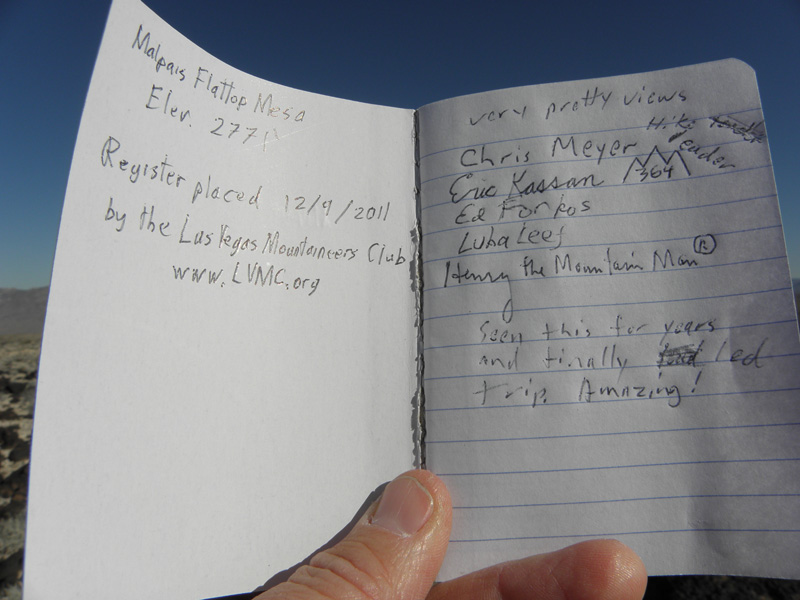 Malpais Flattop Mesa
Elev. 277
Register placed 12/9/2011
by the Las Vegas Mountaineers Club
www.LVMC.org
very pretty views
Chris Meyer Hike
Leader
Eric Kassan 364
Ed Forkos
Luba Leef
Henry the Mountain Man ®
Seen this for years
and finally led
trip. Amazing!